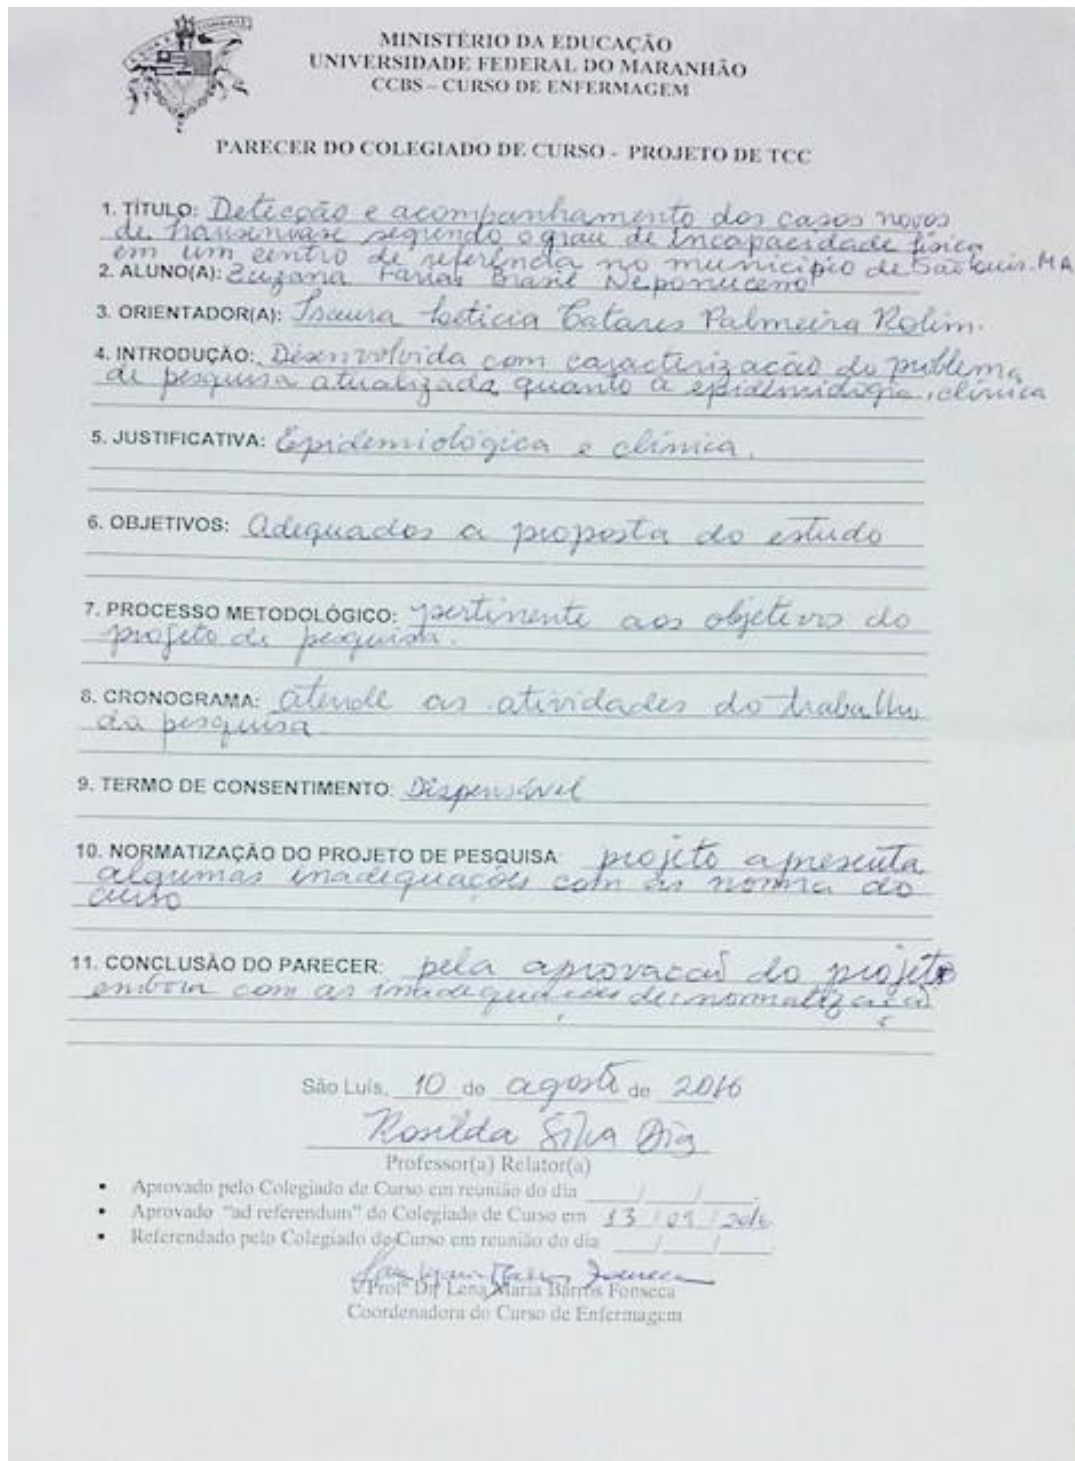 MINISTÉRIO DA EDUCAÇÃO
UNIVERSIDADE FEDERAL DO MARANHÃO
CCBS – CURSO DE ENFERMAGEM
PARECER DO COLEGIADO DE CURSO - PROJETO DE TCC
1. TÍTULO: Detecção e acompanhamento dos casos novos
de hanseníase segundo o grau de Incapacidade física
em um centro de referência no município de São Luís. MA
2. ALUNO(A): Zuzana Farias Brasil Neponuceno
3. ORIENTADOR(A): Isaura Letícia Tavares Palmeira Rolim.
4. INTRODUÇÃO: Desenvolvida com caracterização do problema
de pesquisa atualizada quanto a epidemiologia, clínica
5. JUSTIFICATIVA: Epidemiológica e clínica.
6. OBJETIVOS: Adequados a proposta do estudo
7. PROCESSO METODOLÓGICO: pertinente aos objetivos do
projeto de pesquisa.
8. CRONOGRAMA: atende as atividades do trabalho
da pesquisa
9. TERMO DE CONSENTIMENTO: Dispensável
10. NORMATIZAÇÃO DO PROJETO DE PESQUISA: projeto apresenta
algumas inadequações com as norma do
curso
11. CONCLUSÃO DO PARECER: pela aprovação do projeto
embora com as inadequações de normatização
São Luís, 10 de agosto de 2016
Rosilda Silva Dias
Professor(a) Relator(a)
• Aprovado pelo Colegiado de Curso em reunião do dia ___/___/___.
• Aprovado "ad referendum" do Colegiado de Curso em 13/09/2016
• Referendado pelo Colegiado de Curso em reunião do dia ___/___/___.
Profª Drª Lena Maria Barros Fonseca
Coordenadora do Curso de Enfermagem